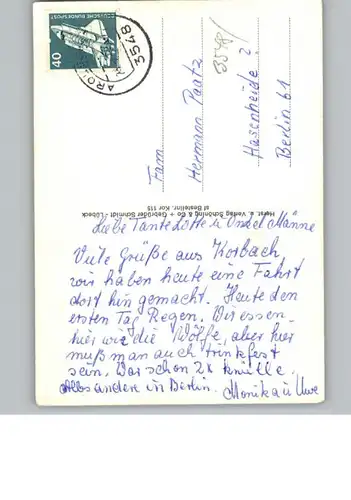 DEUTSCHE BUNDESPOST
40
3548
ARO
3548/
Fam
Hermann Paatz
Hasenheide 2
Berlin 61
Herst. u. Verlag Schöning & Co + Gebrüder Schmidt - Lübeck
Bestellnr. Kor 115
Liebe Tante Lotte u Onkel Männe
Viele Grüße aus Korbach
wir haben heute eine Fahrt
dort hin gemacht. Heute den
ersten Tag Regen. Wir essen
hier wie die Wölfe, aber hier
muß man auch trinkfest
sein. War schon 2x knülle.
Alls andere in Berlin. Monika u Uwe